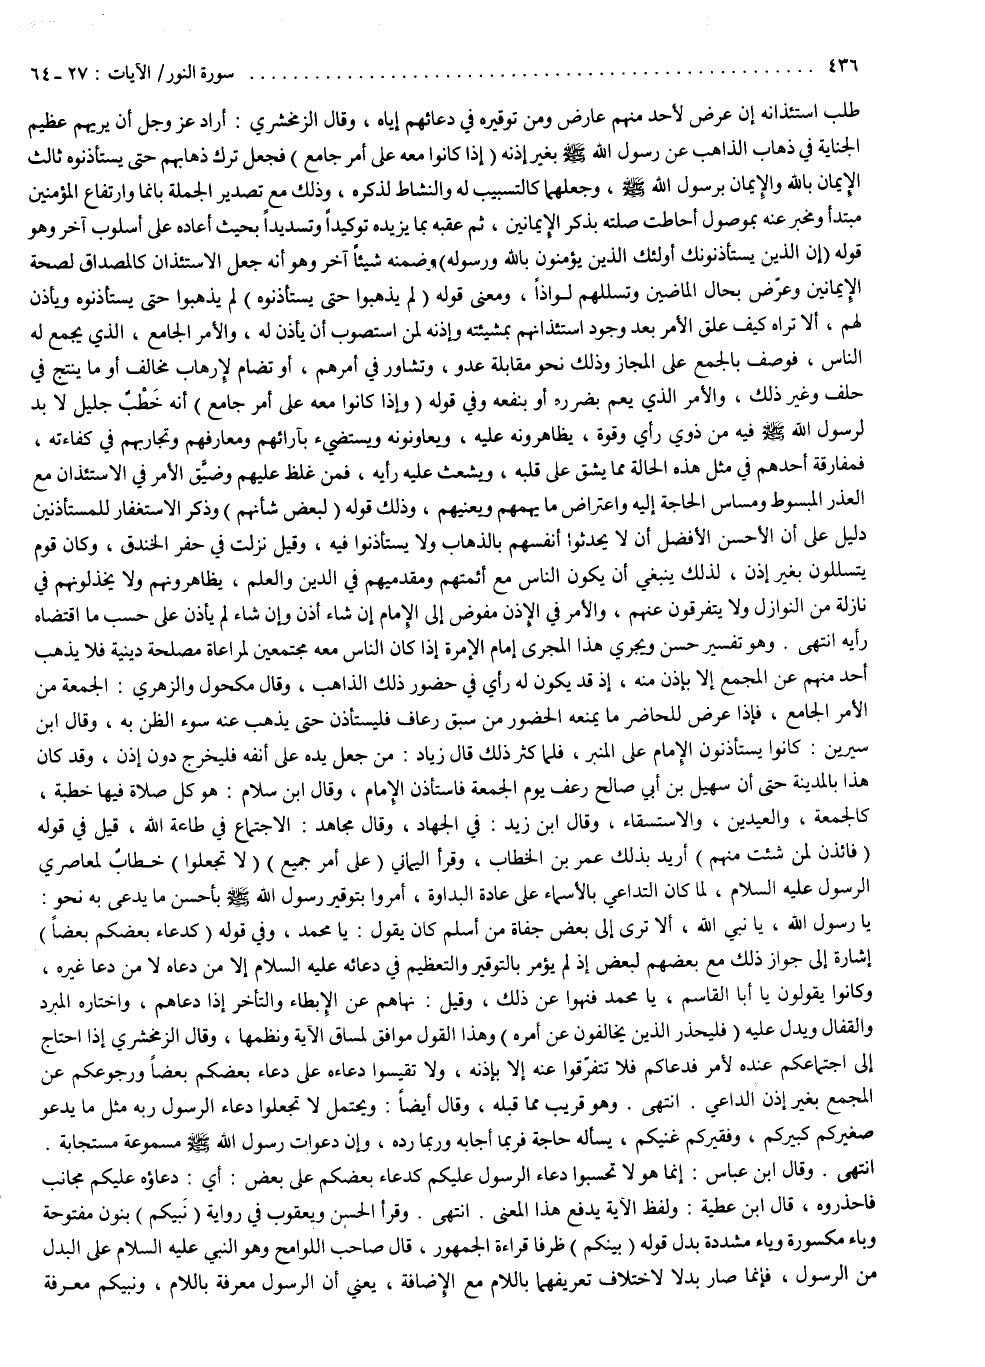 ٤٣٦ ........................................ سورة النور/ الآيات : ٢٧ ـ ٦٤
طلب استئذانه إن عرض لأحد منهم عارض ومن توقيره في دعائهم إياه ، وقال الزمخشري : أراد عز وجل أن يريهم عظيم
الجناية في ذهاب الذاهب عن رسول الله ﷺ بغير إذنه ( إذا كانوا معه على أمر جامع ) فجعل ترك ذهابهم حتى يستأذنوه ثالث
الإيمان بالله والإيمان برسول الله ﷺ ، وجعلهما كالتسبيب له والنشاط لذكره ، وذلك مع تصدير الجملة بانما وارتفاع المؤمنين
مبتدأ ومخبر عنه بموصول أحاطت صلته بذكر الإيمانين ، ثم عقبه بما يزيده توكيداً وتسديداً بحيث أعاده على أسلوب آخر وهو
قوله (إن الذين يستأذنونك أولئك الذين يؤمنون بالله ورسوله) وضمنه شيئاً آخر وهو أنه جعل الاستئذان كالمصداق لصحة
الإيمانين وعرّض بحال الماضين وتسللهم لـواذاً ، ومعنى قوله ( لم يذهبوا حتى يستأذنوه ) لم يذهبوا حتى يستأذنوه ويأذن
لهم ، ألا تراه كيف علق الأمر بعد وجود استئذانهم بمشيئته وإذنه لمن استصوب أن يأذن له ، والأمر الجامع ، الذي يجمع له
الناس ، فوصف بالجمع على المجاز وذلك نحو مقابلة عدو ، وتشاور في أمرهم ، أو تضام لإرهاب مخالف أو ما ينتج في
حلف وغير ذلك ، والأمر الذي يعم بضرره أو بنفعه وفي قوله ( وإذا كانوا معه على أمر جامع ) أنه خَطْبٌ جليل لا بد
لرسول الله ﷺ فيه من ذوي رأي وقوة ، يظاهرونه عليه ، ويعاونونه ويستضيء بآرائهم ومعارفهم وتجاربهم في كفاءته ،
فمفارقة أحدهم في مثل هذه الحالة مما يشق على قلبه ، ويشعث عليه رأيه ، فمن غلظ عليهم وضيَّق الأمر في الاستئذان مع
العذر المبسوط ومساس الحاجة إليه واعتراض ما يهمهم ويعنيهم ، وذلك قوله ( لبعض شأنهم ) وذكر الاستغفار للمستأذنين
دليل على أن الأحسن الأفضل أن لا يحدثوا أنفسهم بالذهاب ولا يستأذنوا فيه ، وقيل نزلت في حفر الخندق ، وكان قوم
يتسللون بغير إذن ، لذلك ينبغي أن يكون الناس مع أئمتهم ومقدميهم في الدين والعلم ، يظاهرونهم ولا يخذلونهم في
نازلة من النوازل ولا يتفرقون عنهم ، والأمر في الإذن مفوض إلى الإمام إن شاء أذن وإن شاء لم يأذن على حسب ما اقتضاه
رأيه انتهى . وهو تفسير حسن ويجري هذا المجرى إمام الإمرة إذا كان الناس معه مجتمعين لمراعاة مصلحة دينية فلا يذهب
أحد منهم عن المجمع إلا بإذن منه ، إذ قد يكون له رأي في حضور ذلك الذاهب ، وقال مكحول والزهري : الجمعة من
الأمر الجامع ، فإذا عرض للحاضر ما يمنعه الحضور من سبق رعاف فليستأذن حتى يذهب عنه سوء الظن به ، وقال ابن
سيرين : كانوا يستأذنون الإمام على المنبر ، فلما كثر ذلك قال زياد : من جعل يده على أنفه فليخرج دون إذن ، وقد كان
هذا بالمدينة حتى أن سهيل بن أبي صالح رعف يوم الجمعة فاستأذن الإمام ، وقال ابن سلام : هو كل صلاة فيها خطبة ،
كالجمعة ، والعيدين ، والاستسقاء ، وقال ابن زيد : في الجهاد ، وقال مجاهد : الاجتماع في طاعة الله ، قيل في قوله
( فائذن لمن شئت منهم ) أريد بذلك عمر بن الخطاب ، وقرأ اليماني ( على أمر جميع ) ( لا تجعلوا ) خـطابٌ لمعاصري
الرسول عليه السلام ، لما كان التداعي بالأسماء على عادة البداوة ، أمروا بتوقير رسول الله ﷺ بأحسن ما يدعى به نحو :
يا رسول الله ، يا نبي الله ، ألا ترى إلى بعض جفاة من أسلم كان يقول : يا محمد ، وفي قوله ( كدعاء بعضكم بعضاً )
إشارة إلى جواز ذلك مع بعضهم لبعض إذ لم يؤمر بالتوقير والتعظيم في دعائه عليه السلام إلا من دعاه لا من دعا غيره ،
وكانوا يقولون يا أبا القاسم ، يا محمد فنهوا عن ذلك ، وقيل : نهاهم عن الإبطاء والتأخر إذا دعاهم ، واختاره المبرد
والقفال ويدل عليه ( فليحذر الذين يخالفون عن أمره ) وهذا القول موافق لمساق الآية ونظمها ، وقال الزمخشري إذا احتاج
إلى اجتماعكم عنده لأمر فدعاكم فلا تتفرّقوا عنه إلا بإذنه ، ولا تقيسوا دعاءه على دعاء بعضكم بعضاً ورجوعكم عن
المجمع بغير إذن الداعي . انتهى . وهو قريب مما قبله ، وقال أيضاً : ويحتمل لا تجعلوا دعاء الرسول ربه مثل ما يدعو
صغيركم كبيركم ، وفقيركم غنيكم ، يسأله حاجة فربما أجابه وربما رده ، وإن دعوات رسول الله ﷺ مسموعة مستجابة .
انتهى . وقال ابن عباس : إنما هو لا تحسبوا دعاء الرسول عليكم كدعاء بعضكم على بعض : أي : دعاؤه عليكم مجانب
فاحذروه ، قال ابن عطية : ولفظ الآية يدفع هذا المعنى . انتهى . وقرأ الحسن ويعقوب في رواية ( نَبيكم ) بنون مفتوحة
وباء مكسورة وياء مشددة بدل قوله ( بينكم ) ظرفا قراءة الجمهور ، قال صاحب اللوامح وهو النبي عليه السلام على البدل
من الرسول ، فإنما صار بدلا لاختلاف تعريفهما باللام مع الإضافة ، يعني أن الرسول معرفة باللام ، ونبيكم معـرفة